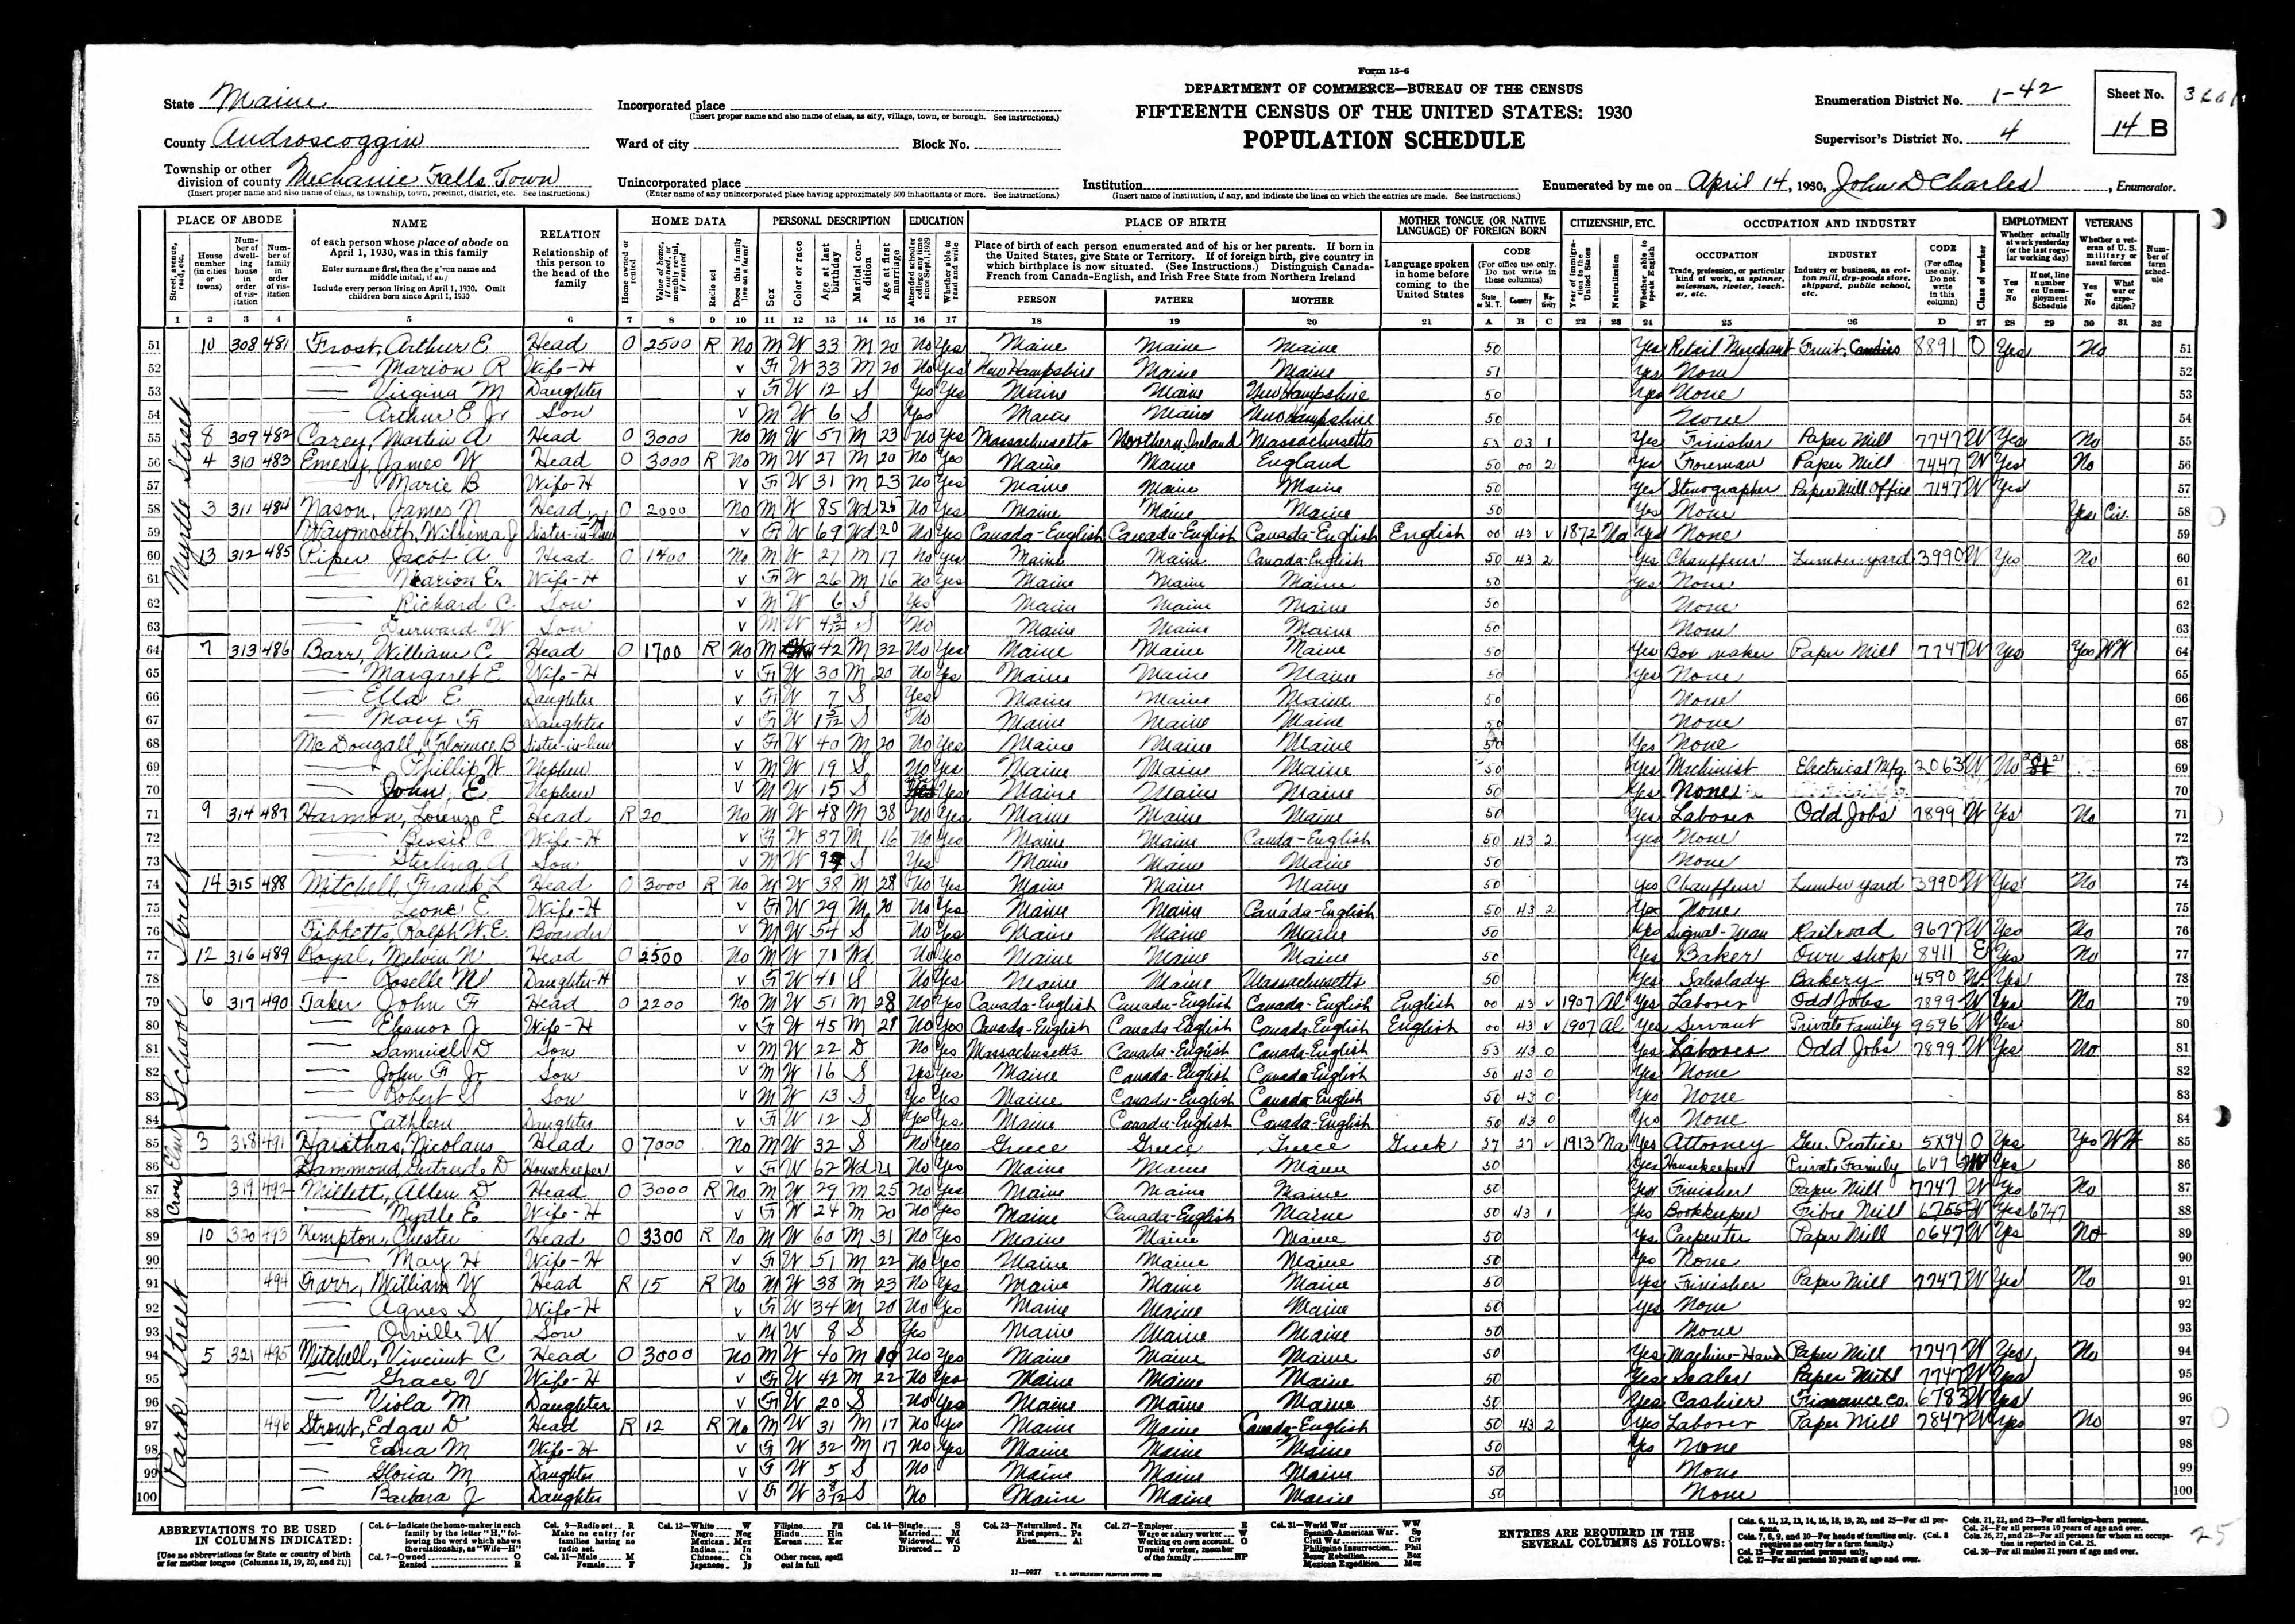 Form 15-6
DEPARTMENT OF COMMERCE—BUREAU OF THE CENSUS
FIFTEENTH CENSUS OF THE UNITED STATES: 1930
POPULATION SCHEDULE
State Maine
County Androscoggin
Township or other division of county Mechanic Falls Town
(Insert proper name and also name of class, as township, town, precinct, district, etc. See instructions.)
Incorporated place
(Insert proper name and also name of class, as city, village, town, or borough. See instructions.)
Ward of city Block No.
Unincorporated place
(Enter name of any unincorporated place having approximately 500 inhabitants or more. See instructions.)
Institution
(Insert name of institution, if any, and indicate the lines on which the entries are made. See instructions.)
Enumeration District No. 1-42
Supervisor's District No. 4
Sheet No. 14 B
Enumerated by me on April 14, 1930, John D Charles, Enumerator.
PLACE OF ABODE NAME RELATION HOME DATA PERSONAL DESCRIPTION EDUCATION PLACE OF BIRTH MOTHER TONGUE (OR NATIVE LANGUAGE) OF FOREIGN BORN CITIZENSHIP, ETC. OCCUPATION AND INDUSTRY EMPLOYMENT VETERANS
PERSON FATHER MOTHER
1 2 3 4 5 6 7 8 9 10 11 12 13 14 15 16 17 18 19 20 21 A B C 22 23 24 25 26 D 27 28 29 30 31 32
Myrtle Street
51 10 308 481 Frost, Arthur E Head O 2500 R No M W 33 M 20 No Yes Maine Maine Maine 50 Yes Retail Merchant Fruit, Candies 8891 O Yes No 51
52 Marion R Wife-H v F W 33 M 20 No Yes New Hampshire Maine Maine 51 Yes None 52
53 Virgina M Daughter v F W 12 S Yes Yes Maine Maine New Hampshire 50 Yes None 53
54 Arthur E Jr Son v M W 6 S Yes Maine Maine New Hampshire 50 None 54
55 8 309 482 Carey, Martin A Head O 3000 No M W 57 M 23 No Yes Massachusetts Northern Ireland Massachusetts 53 03 1 Yes Finisher Paper Mill 7747 W Yes No 55
56 4 310 483 Emerly, James W Head O 3000 R No M W 27 M 20 No Yes Maine Maine England 50 00 2 Yes Foreman Paper Mill 7447 W Yes No 56
57 Marie B Wife-H v F W 31 M 23 No Yes Maine Maine Maine 50 Yes Stenographer Paper Mill Office 7147 W Yes 57
58 3 311 484 Nason, James N Head O 2000 No M W 85 Wd 25 No Yes Maine Maine Maine 50 Yes None Yes Civ. 58
59 Waymouth, Wilhemia J Sister-in-law v F W 69 Wd 20 No Yes Canada-English Canada-English Canada-English English 00 43 v 1872 Na Yes None 59
60 13 312 485 Piper Jacob A Head O 1400 No M W 27 M 17 No Yes Maine Maine Canada-English 50 43 2 Yes Chauffeur Lumber yard 3990 W Yes No 60
61 Marion E. Wife-H v F W 26 M 16 No Yes Maine Maine Maine 50 Yes None 61
62 Richard C Son v M W 6 S Yes Maine Maine Maine 50 None 62
63 Durward W Son v M W 4 3/12 S No Maine Maine Maine 50 None 63
School Street
64 7 313 486 Barr, William C Head O 1700 R No M W 42 M 32 No Yes Maine Maine Maine 50 Yes Box maker Paper Mill 7747 W Yes Yes WW 64
65 Margaret E Wife-H v F W 30 M 20 No Yes Maine Maine Maine 50 Yes None 65
66 Ella E Daughter v F W 7 S Yes Maine Maine Maine 50 None 66
67 Mary F Daughter v F W 1 3/12 S No Maine Maine Maine 50 None 67
68 McDougall, Florence B Sister-in-law v F W 40 M 20 No Yes Maine Maine Maine 50 Yes None 68
69 Phillip W Nephew v M W 19 S No Yes Maine Maine Maine 50 Yes Machinist Electrical Mfg. 2063 W No 69
70 John E Nephew v M W 15 S Yes Yes Maine Maine Maine 50 Yes None 70
71 9 314 487 Harmon, Lorenzo E Head R 20 No M W 48 M 38 No Yes Maine Maine Maine 50 Yes Laborer Odd Jobs 7899 W Yes No 71
72 Bessie C Wife-H v F W 37 M 16 No Yes Maine Maine Canada-English 50 43 2 Yes None 72
73 Sterling A Son v M W 9 S Yes Maine Maine Maine 50 None 73
74 14 315 488 Mitchell, Frank L Head O 3000 R No M W 38 M 28 No Yes Maine Maine Maine 50 Yes Chauffeur Lumber yard 3990 W Yes No 74
75 Leone E Wife-H v F W 29 M 20 No Yes Maine Maine Canada-English 50 43 2 Yes None 75
76 Tibbetts, Ralph W.E. Boarder v M W 54 S No Yes Maine Maine Maine 50 Yes Signal-man Railroad 9677 W Yes No 76
77 12 316 489 Royal, Melvin N Head O 2500 No M W 71 Wd No Yes Maine Maine Maine 50 Yes Baker Own shop 8411 E Yes No 77
78 Roselle N Daughter-H v F W 41 S No Yes Maine Maine Massachusetts 50 Yes Saleslady Bakery 4590 Yes 78
79 6 317 490 Taker John F Head O 2200 No M W 51 M 28 No Yes Canada-English Canada-English Canada-English English 00 43 v 1907 Al Yes Laborer Odd Jobs 7899 W Yes No 79
80 Eleanor J Wife-H v F W 45 M 21 No Yes Canada-English Canada-English Canada-English English 00 43 v 1907 Al Yes Servant Private Family 9596 W Yes 80
81 Samuel D Son v M W 22 D No Yes Massachusetts Canada-English Canada-English 53 43 0 Yes Laborer Odd Jobs 7899 W Yes No 81
82 John F Jr Son v M W 16 S Yes Yes Maine Canada-English Canada-English 50 43 0 Yes None 82
83 Robert S Son v M W 13 S Yes Yes Maine Canada-English Canada-English 50 43 0 Yes None 83
84 Cathleen Daughter v F W 12 S Yes Yes Maine Canada-English Canada-English 50 43 0 Yes None 84
Elm
85 3 318 491 Harithas, Nicolaus Head O 7000 No M W 32 S No Yes Greece Greece Greece Greek 27 27 v 1913 Na Yes Attorney Gen. Pratice 5X94 O Yes Yes WW 85
86 Hammond, Gertrude D Housekeeper v F W 62 Wd 21 No Yes Maine Maine Maine 50 Yes Housekeeper Private Family Yes 86
Cross
87 319 492 Millett, Allen D Head O 3000 R No M W 29 M 25 No Yes Maine Maine Maine 50 Yes Finisher Paper Mill 7747 W Yes No 87
88 Myrtle E Wife-H v F W 24 M 20 No Yes Maine Canada-English Maine 50 43 1 Yes Bookkeeper Fibre Mill 6755 W Yes 6747 88
Park Street
89 10 320 493 Kempton, Chester Head O 3300 R No M W 60 M 31 No Yes Maine Maine Maine 50 Yes Carpenter Paper Mill 0647 W Yes No 89
90 May H Wife-H v F W 51 M 22 No Yes Maine Maine Maine 50 Yes None 90
91 494 Farr, William W Head R 15 R No M W 38 M 23 No Yes Maine Maine Maine 50 Yes Finisher Paper Mill 7747 W Yes No 91
92 Agnes S Wife-H v F W 34 M 20 No Yes Maine Maine Maine 50 Yes None 92
93 Orville W Son v M W 8 S Yes Maine Maine Maine 50 None 93
94 5 321 495 Mitchell, Vincient C Head O 3000 No M W 40 M 19 No Yes Maine Maine Maine 50 Yes Machine-Hand Paper Mill 7747 W Yes No 94
95 Grace V Wife-H v F W 42 M 22 No Yes Maine Maine Maine 50 Yes Sealer Paper Mill 7747 W Yes 95
96 Viola M Daughter v F W 20 S No Yes Maine Maine Maine 50 Yes Cashier Finance Co. 6783 W Yes 96
97 496 Strout, Edgar D Head R 12 R No M W 31 M 17 No Yes Maine Maine Canada-English 50 43 2 Yes Laborer Paper Mill 7847 W Yes No 97
98 Edna M Wife-H v F W 32 M 17 No Yes Maine Maine Maine 50 Yes None 98
99 Gloria M Daughter v F W 5 S No Maine Maine Maine 50 None 99
100 Barbara J Daughter v F W 3 8/12 S No Maine Maine Maine 50 None 100
ABBREVIATIONS TO BE USED IN COLUMNS INDICATED:
[Use no abbreviations for State or country of birth or for mother tongue (Columns 18, 19, 20, and 21)]
ENTRIES ARE REQUIRED IN THE SEVERAL COLUMNS AS FOLLOWS:
25